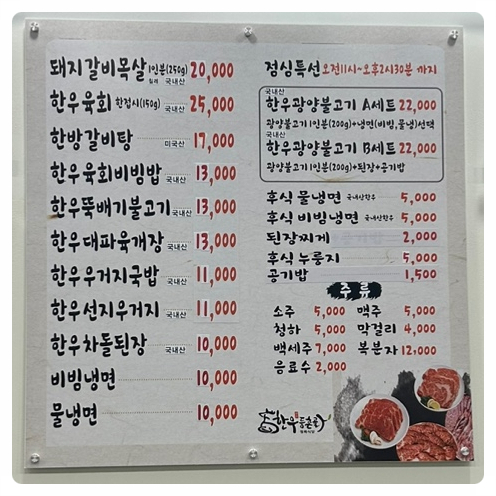 돼지갈비목살 1인분(250g) 국내산 20,000
한우육회 한접시(150g) 국내산 25,000
한방갈비탕 미국산 17,000
한우육회비빔밥 국내산 13,000
한우뚝배기불고기 국내산 13,000
한우대파육개장 국내산 13,000
한우우거지국밥 국내산 11,000
한우선지우거지 국내산 11,000
한우차돌된장 국내산 10,000
비빔냉면 10,000
물냉면 10,000
점심특선 오전11시~오후2시30분 까지
국내산
한우광양불고기 A세트 22,000
광양불고기 1인분(200g)+냉면(비빔,물냉)선택
국내산
한우광양불고기 B세트 22,000
광양불고기 1인분(200g)+된장+공기밥
후식 물냉면 국내산한우 5,000
후식 비빔냉면 국내산한우 5,000
된장찌게 2,000
후식 누룽지 5,000
공기밥 1,500
주류
소주 5,000 맥주 5,000
청하 5,000 막걸리 4,000
백세주 7,000 복분자 12,000
음료수 2,000